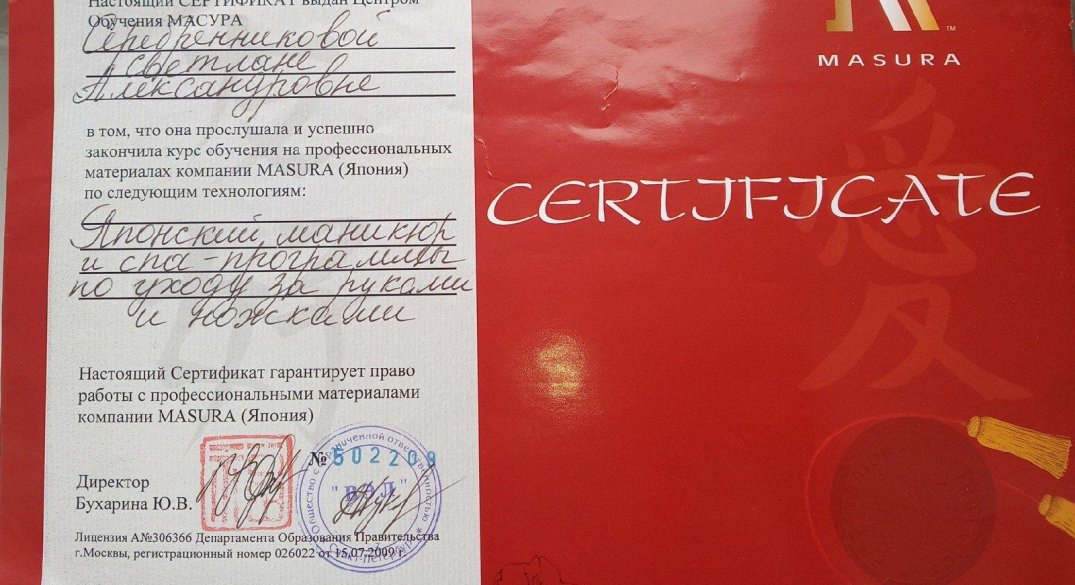 Настоящий СЕРТИФИКАТ выдан Центром
Обучения МАСУРА
Серебренниковой
Светлане
Александровне
в том, что она прослушала и успешно
закончила курс обучения на профессиональных
материалах компании MASURA (Япония)
по следующим технологиям:
Японский маникюр
и спа-программы
по уходу за руками
и ножками
Настоящий Сертификат гарантирует право
работы с профессиональными материалами
компании MASURA (Япония)
Директор
Бухарина Ю.В.
№502209
Общество с ограниченной ответственностью
Санкт-Петербург
Лицензия А№306366 Департамента Образования Правительства
г.Москвы, регистрационный номер 026022 от 15.07.2009 г.
TM
MASURA
CERTIFICATE
愛